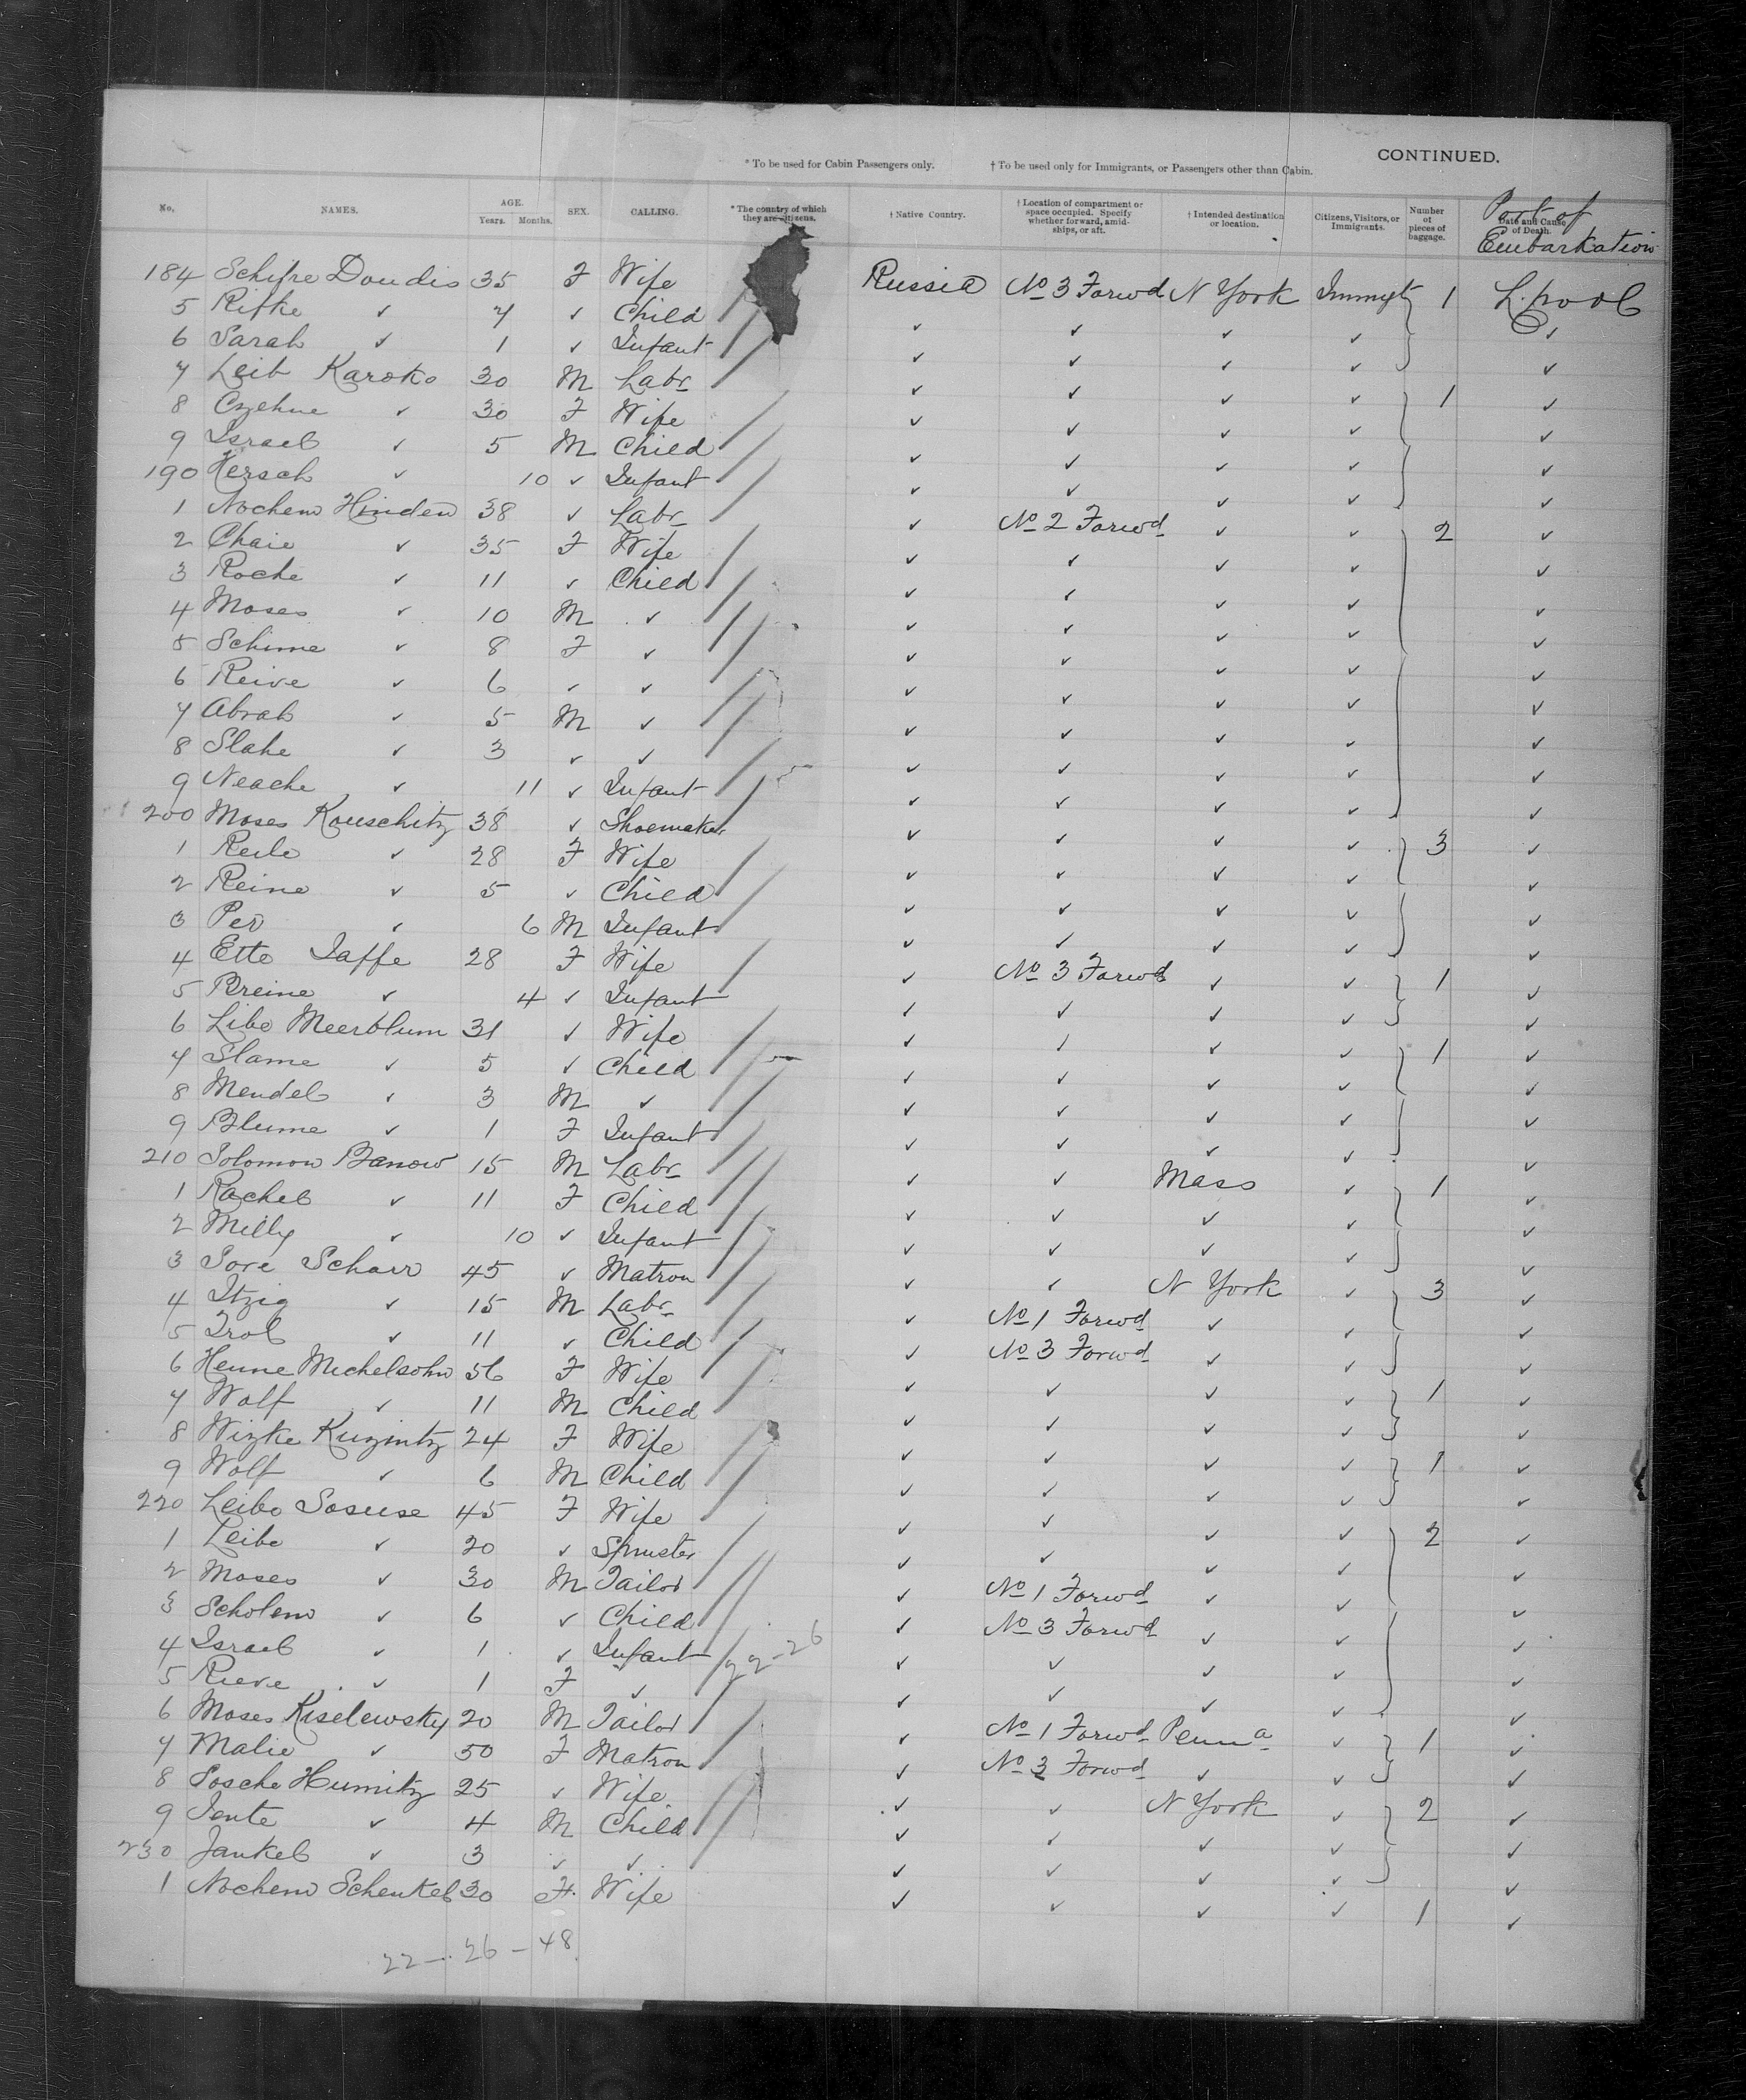 CONTINUED.
* To be used for Cabin Passengers only. † To be used only for Immigrants, or Passengers other than Cabin.
No. NAMES. AGE. Years. Months. SEX. CALLING. * The country of which they are citizens. † Native Country. † Location of compartment or space occupied. Specify whether forward, amidships, or aft. † Intended destination or location. Citizens, Visitors, or Immigrants. Number of pieces of baggage. Date and Cause of Death. Port of Embarkation
184 Schifre Doudis 35 F Wife Russia No 3 Forwd N York Immgt 1 L.pool
5 Rifke ✓ 7 ✓ Child ✓ ✓ ✓ ✓ ✓
6 Sarah ✓ 1 ✓ Infant ✓ ✓ ✓ ✓ ✓
7 Leib Karoko 30 M Labr ✓ ✓ ✓ ✓ 1 ✓
8 Czehne ✓ 30 F Wife ✓ ✓ ✓ ✓ ✓
9 Israel ✓ 5 M Child ✓ ✓ ✓ ✓ ✓
190 Hersch ✓ 10 ✓ Infant ✓ ✓ ✓ ✓ ✓
1 Nochem Hinden 38 ✓ Labr ✓ No 2 Forwd ✓ ✓ 2 ✓
2 Chaie ✓ 35 F Wife ✓ ✓ ✓ ✓ ✓
3 Roche ✓ 11 ✓ Child ✓ ✓ ✓ ✓ ✓
4 Moses ✓ 10 M ✓ ✓ ✓ ✓ ✓ ✓
5 Schime ✓ 8 F ✓ ✓ ✓ ✓ ✓ ✓
6 Reive ✓ 6 ✓ ✓ ✓ ✓ ✓ ✓ ✓
7 Abrah ✓ 5 M ✓ ✓ ✓ ✓ ✓ ✓
8 Slahe ✓ 3 ✓ ✓ ✓ ✓ ✓ ✓ ✓
9 Neache ✓ 11 ✓ Infant ✓ ✓ ✓ ✓ ✓
200 Moses Kouschitz 38 ✓ Shoemaker ✓ ✓ ✓ ✓ 3 ✓
1 Reile ✓ 28 F Wife ✓ ✓ ✓ ✓ ✓
2 Reine ✓ 5 ✓ Child ✓ ✓ ✓ ✓ ✓
3 Per ✓ 6 M Infant ✓ ✓ ✓ ✓ ✓
4 Ette Jaffe 28 F Wife ✓ No 3 Forwd ✓ ✓ 1 ✓
5 Breine ✓ 4 ✓ Infant ✓ ✓ ✓ ✓ ✓
6 Libe Meerblum 31 ✓ Wife ✓ ✓ ✓ ✓ 1 ✓
7 Slame ✓ 5 ✓ Child ✓ ✓ ✓ ✓ ✓
8 Mendel ✓ 3 M ✓ ✓ ✓ ✓ ✓ ✓
9 Blume ✓ 1 F Infant ✓ ✓ ✓ ✓ ✓
210 Solomon Banow 15 M Labr ✓ ✓ Mass ✓ 1 ✓
1 Rachel ✓ 11 F Child ✓ ✓ ✓ ✓ ✓
2 Milly ✓ 10 ✓ Infant ✓ ✓ ✓ ✓ ✓
3 Sore Scharr 45 ✓ Matron ✓ ✓ N York ✓ 3 ✓
4 Itzig ✓ 15 M Labr ✓ No 1 Forwd ✓ ✓ ✓
5 Irol ✓ 11 ✓ Child ✓ No 3 Forwd ✓ ✓ ✓
6 Henne Michelsohn 56 F Wife ✓ ✓ ✓ ✓ 1 ✓
7 Wolf ✓ 11 M Child ✓ ✓ ✓ ✓ ✓
8 Wizke Kuzintz 24 F Wife ✓ ✓ ✓ ✓ 1 ✓
9 Wolf ✓ 6 M Child ✓ ✓ ✓ ✓ ✓
220 Leibe Sosuse 45 F Wife ✓ ✓ ✓ ✓ 2 ✓
1 Leibe ✓ 20 ✓ Spinster ✓ ✓ ✓ ✓ ✓
2 Moses ✓ 30 M Tailor ✓ No 1 Forwd ✓ ✓ ✓
3 Scholem ✓ 6 ✓ Child ✓ No 3 Forwd ✓ ✓ ✓
4 Israel ✓ 1 ✓ Infant 22-26 ✓ ✓ ✓ ✓ ✓
5 Rieve ✓ 1 F ✓ ✓ ✓ ✓ ✓ ✓
6 Moses Kiselewsky 20 M Tailor ✓ No 1 Forwd Penna ✓ 1 ✓
7 Malie ✓ 50 F Matron ✓ No 3 Forwd ✓ ✓ ✓
8 Sosche Humitz 25 ✓ Wife ✓ ✓ N York ✓ 2 ✓
9 Jente ✓ 4 M Child ✓ ✓ ✓ ✓ ✓
230 Jankel ✓ 3 ✓ ✓ ✓ ✓ ✓ ✓ ✓
1 Nochem Schenkel 30 F. Wife ✓ ✓ ✓ ✓ 1 ✓
22 - 26 - 48